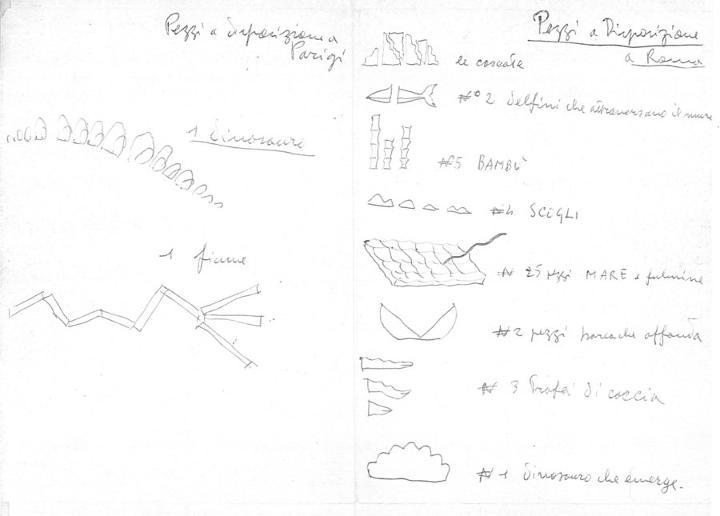 Pezzi a disposizione a
Parigi
1 dinosauro
1 fiume
Pezzi a Disposizione
a Roma
le cascate
N° 2 delfini che attraversano il muro
N 5 BAMBÙ
N 4 SCOGLI
N 25 pezzi MARE e fulmine
N 2 pezzi barca che affonda
N 3 Trofei di caccia
N 1 dinosauro che emerge.